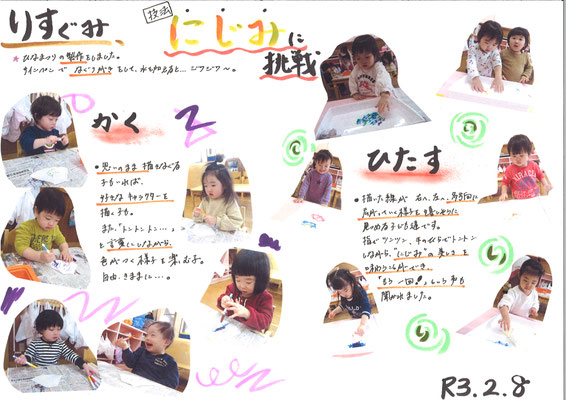 りすぐみ、
技法
にじみに
挑戦
★ひなまつりの製作をしました。
サインペンで なぐり描きをして、水を加えると… ジワジワ〜。
かく
●思いのまま 描きなぐる
子もいれば、
好きなキャラクターを
描く子も。
また、「トントントン…。」
と言葉にしながら、
色がつく様子を楽しむ子。
自由、きままに…。
ひたす
●描いた線が 右へ、左へ、多方向に
広がっていく様子を
見つめる子ども達です。
指でツンツン、手のひらでトントン
しながら、"にじみ"の美しさを
味わうことができ、
「もう一回!」という声も
聞かれました。
R3.2.8